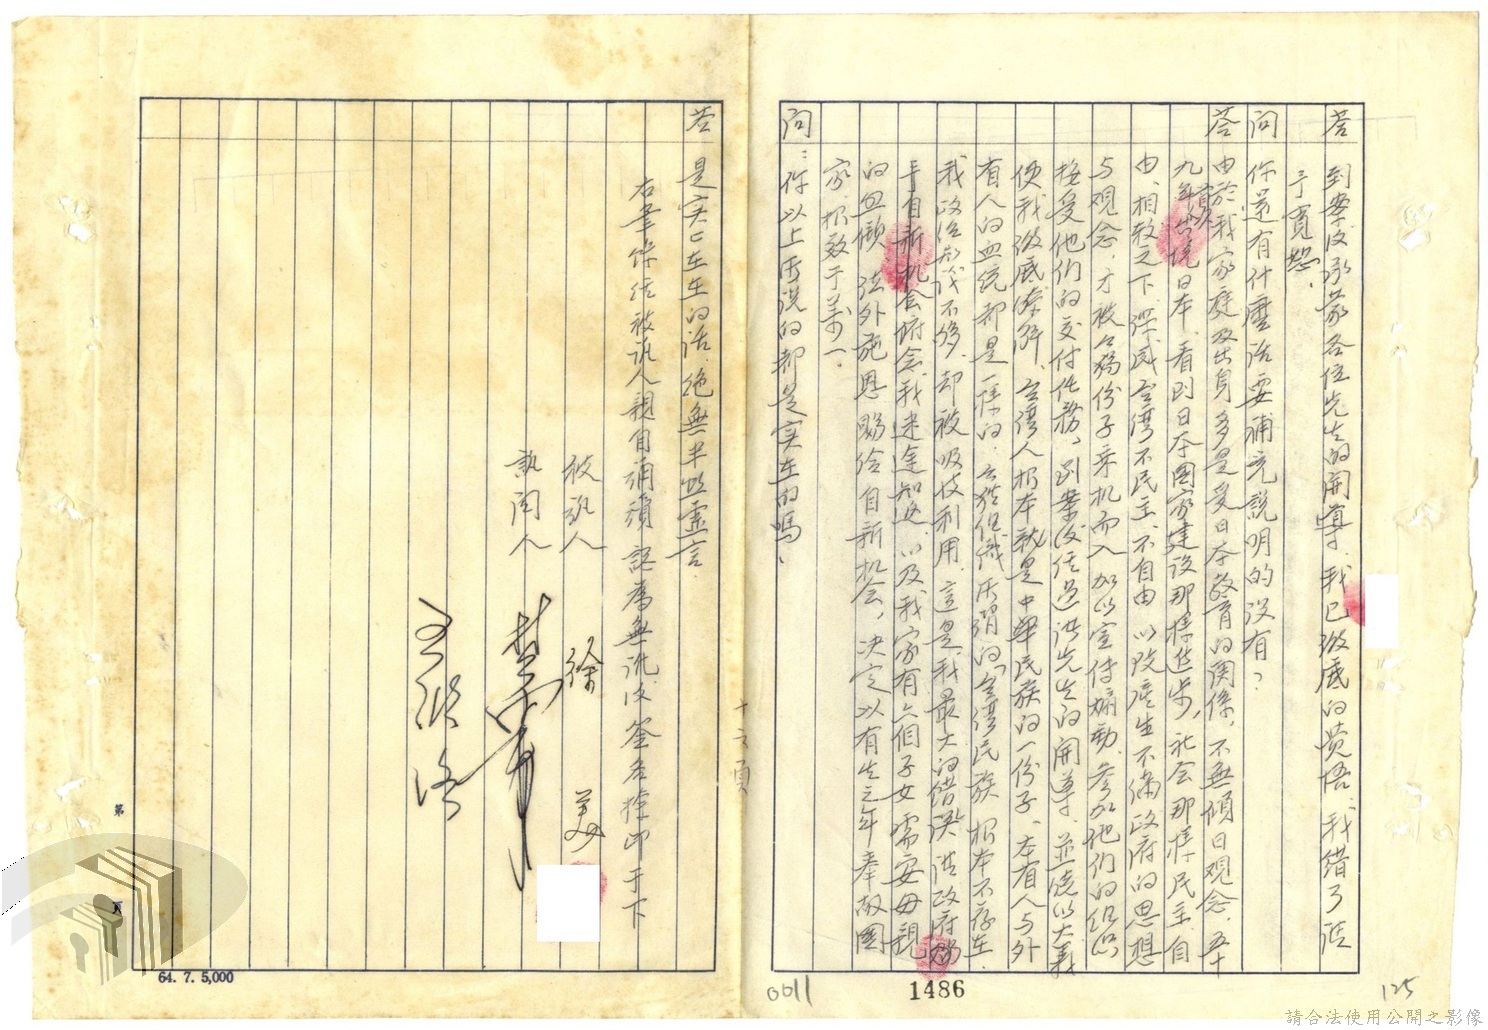 答 到案後承蒙各位先生的開導、我已澈底的黄悟、我錯了請
予寬恕、
问 你還有什麼话要補充說明的没有?
答 由於我家庭及出身多是受日本教育的関係、不無傾日観念、五十
九年 出境日本、看到日本國家建设那樣進步、社会那樣民主、自
由、相較之下、深感台湾不民主、不自由、以致產生不满政府的思想
与観念、才被 份子乘机而入加以宣传煽動、参加他们的组织
接受他們的交付任務。到案後任過洪先生的開導、並曉以大義
使我澈底瞭解、台湾人根本就是中華民族的一份子、本省人与外
省人的血统都是一樣的、 组織所謂的「台湾民族」根本不存在、
我政治知识不够、却被吸收利用、這是我最大的错誤、请政府賜
予自新机会、 念我迷途知返、以及我家有六個子女需要母親
的 、法外施恩、賜给自新机会、决定以有生之年奉献國
家、报效于萬一、
问：你以上所说的都是实在的嗎、
答 是实實在在的话、绝無半点虚言、
右筆錄经被訊人親自誦讀認為無訛後簽名捺印于下
被訊人 徐 美
訊问人
十六頁
第 頁
64. 7. 5,000
0011
1486
125
請合法使用公開之影像